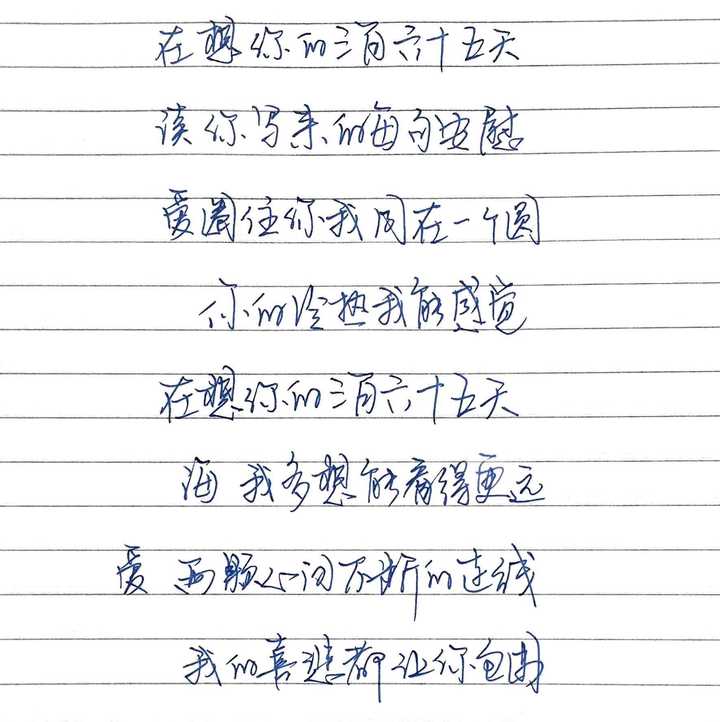 在想你的三百六十五天
读你写来的每句安慰
爱圈住你我同在一个圆
你的冷热我能感觉
在想你的三百六十五天
海 我多想能看得更远
爱 两颗心间不断的连线
我的喜悲都让你包围